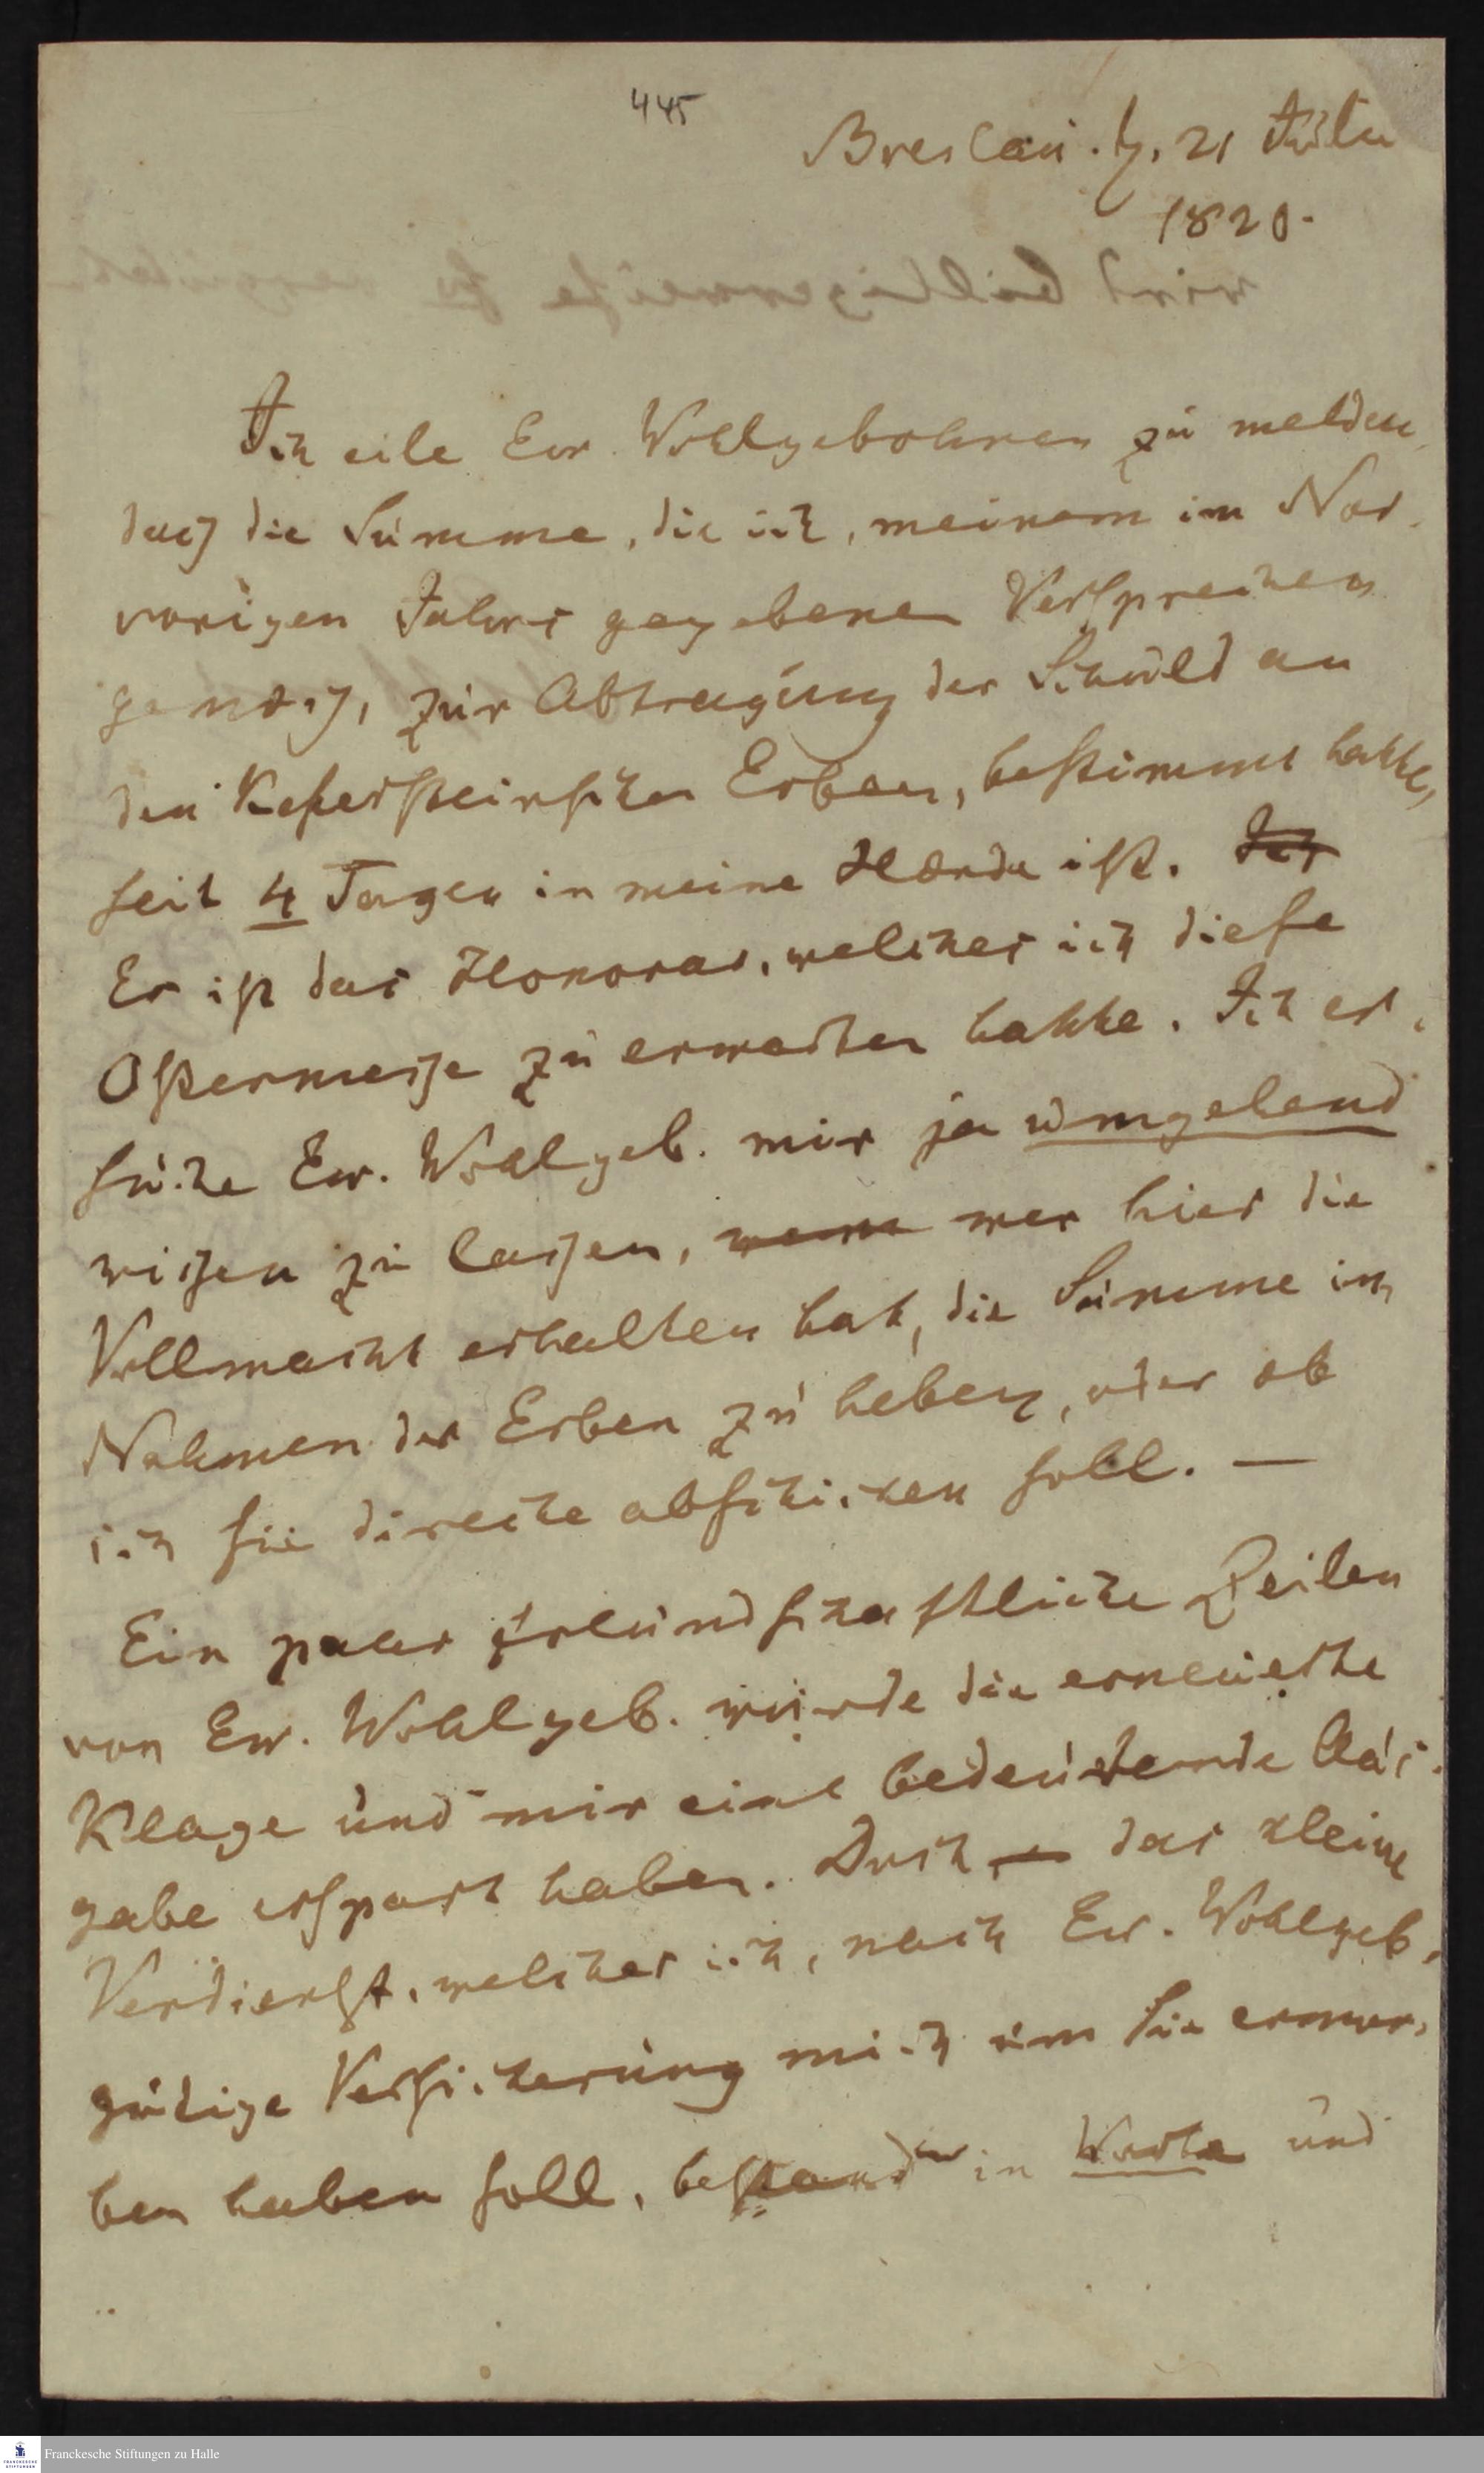 445
Breslau. d. 21 Julii
1820.
Ich eile Ew. Wohlgebohren zu melden
daß die Summe, die ich, meinem im Nov.
vorigen Jahrs gegebenen Versprechen
gemäß, zur Abtragung der Schuld an
den Kefersteinschen Erben, bestimmt hatte,
seit 4 Tagen in meine Hände ist.
Es ist das Honorar, welches ich diese
Ostermesse zu erwarten hatte. Ich er-
suche Ew. Wohlgeb. mir ja umgehend
wissen zu lassen, wenn wer hier die
Vollmacht erhalten hat, die Summe im
Nahmen der Erben zu heben, oder ob
ich sie directe abschicken soll. —
Ein paar freundschaftliche Zeilen
von Ew. Wohlgeb. würde die erneuerte
Klage und mir eine bedeutende Aus-
gabe erspart haben. Doch das kleine
Verdienst, welches ich, nach Ew. Wohlgeb.
gütige Versicherung mich um Sie erwor-
ben haben soll, bestand in Worte und
Franckesche Stiftungen zu Halle